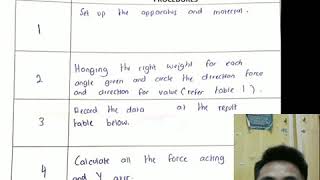 PROCEDURES
1
Set up the apparatus and material.
2
Hanging the right weight for each
angle given and circle the direction force
and direction for value (refer table 1).
3
Record the data at the result
table below.
4
Calculate all the force acting
and Y axis.